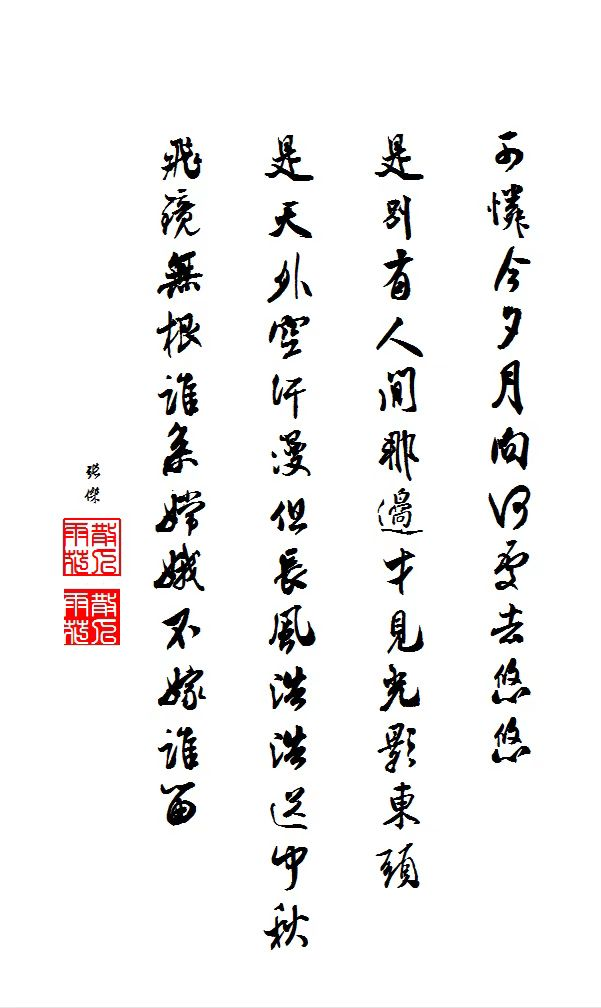 可憐今夕月向何處去悠悠
是別有人間那邊才見光影東頭
是天外空汗漫但長風浩浩送中秋
飛鏡無根誰系嫦娥不嫁誰留
張傑